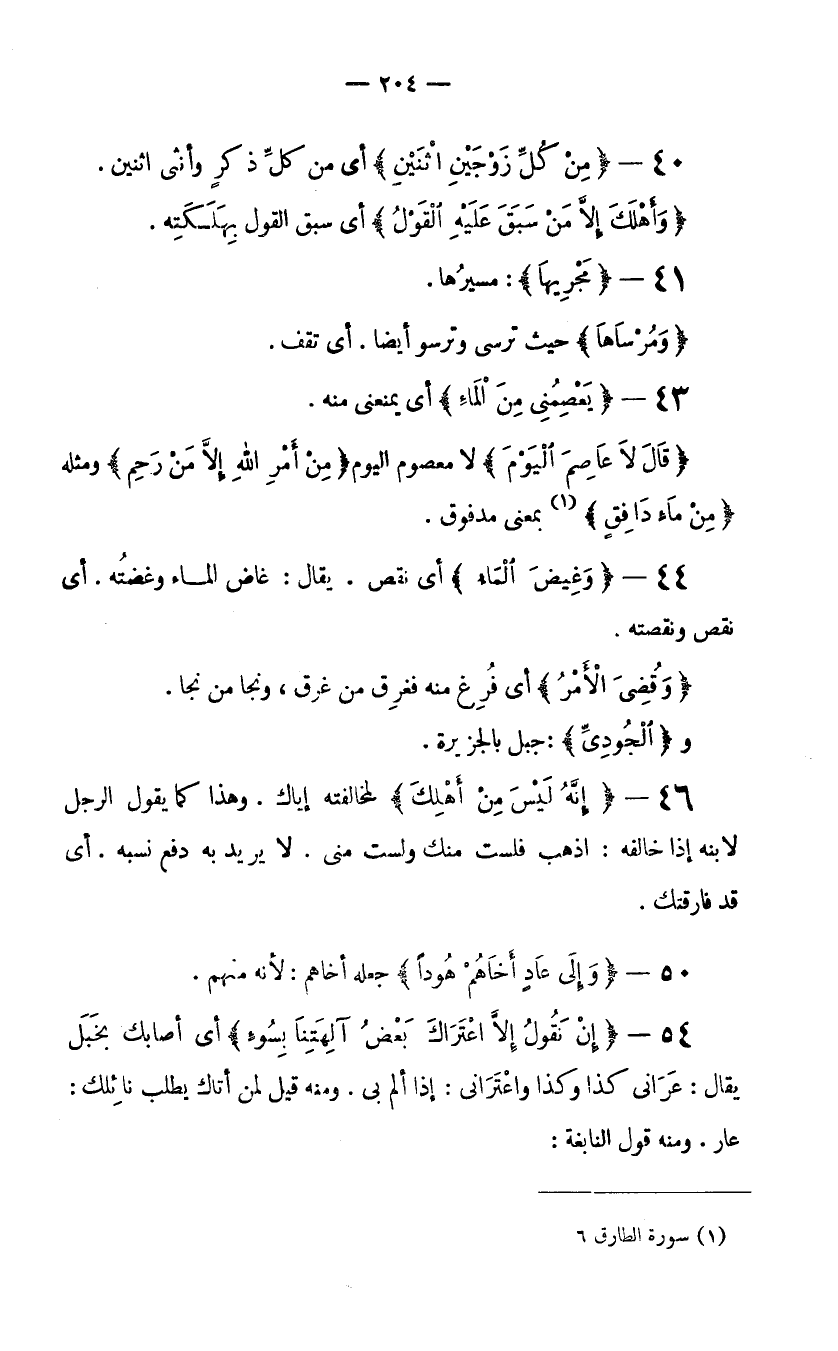 — ٢٠٤ —
٤٠ — ﴿ مِنْ كُلِّ زَوْجَيْنِ اثْنَيْنِ ﴾ أى من كلِّ ذكرٍ وأنثى اثنين .
﴿ وَأَهْلَكَ إِلاَّ مَنْ سَبَقَ عَلَيْهِ ٱلْقَوْلُ ﴾ أى سبق القول بِهَلَـكَتِه .
٤١ — ﴿ مَجْرِيهاَ ﴾ : مسيرُها .
﴿ وَمُرْسَاهَا ﴾ حيث ترسى وترسو أيضا . أى تقف .
٤٣ — ﴿ يَعْصِمُنِى مِنَ ٱلْمَاءِ ﴾ أى يمنعنى منه .
﴿ قَالَ لاَ عَاصِمَ ٱلْيَوْمَ ﴾ لا معصوم اليوم ﴿ مِنْ أَمْرِ اللهِ إِلاَّ مَنْ رَحِمَ ﴾ ومثله
﴿ مِنْ مَاءٍ دَافِقٍ ﴾ (١) بمعنى مدفوق .
٤٤ — ﴿ وَغِيضَ ٱلْمَاءُ ﴾ أى نقص . يقال : غاض المـاء وغضتُه . أى
نقص ونقصته .
﴿ وَقُضِىَ الْأَمْرُ ﴾ أى فُرِغ منه فغرِق من غرق ، ونجا من نجا .
و ﴿ ٱلْجُودِىِّ ﴾ : جبل بالجزيرة .
٤٦ — ﴿ إِنَّهُ لَيْسَ مِنْ أَهْلِكَ ﴾ لمخالفته إياك . وهذا كما يقول الرجل
لابنه إذا خالفه : اذهب فلست منك ولست منى . لا يريد به دفع نسبه . أى
قد فارقتك .
٥٠ — ﴿ وَإِلَى عَادٍ أَخَاهُمْ هُوداً ﴾ جعله أخاهم : لأنه منهم .
٥٤ — ﴿ إِنْ نَقُولُ إِلاَّ اعْتَرَاكَ بَعْضُ آلِهَتِنَا بِسُوءٍ ﴾ أى أصابك بخَبَل
يقال : عَرَانى كذا وكذا واعْتَرَانى : إذا ألم بى . ومنه قيل لمن أتاك يطلب نائلك :
عار . ومنه قول النابغة :
(١) سورة الطارق ٦